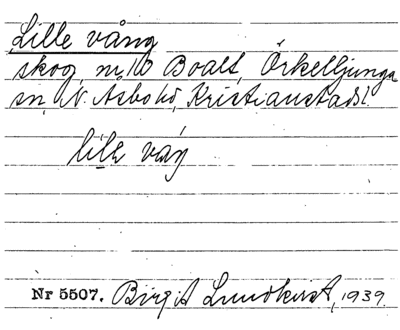 Lille vång
skog, m. 10 Boalt, Örkelljunga
sn, N. Åsbo hd, Kristianstads l.
lilə váŋ
Nr 5507. Birgit Lundkvist, 1939.